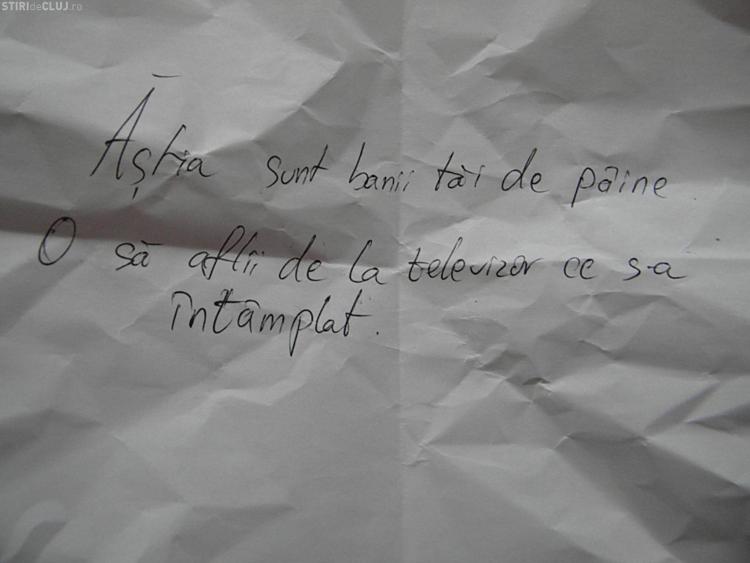 STIRIdeCLUJ.ro
Ăștia sunt banii tăi de pâine
O să aflii de la televizor ce s-a
întâmplat.